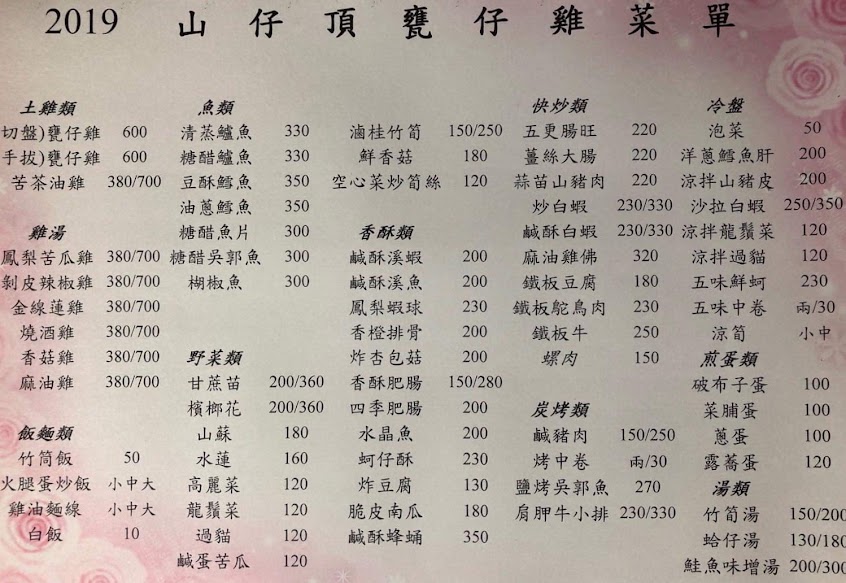 2019 山仔頂甕仔雞菜單
土雞類
切盤)甕仔雞 600
手拔)甕仔雞 600
苦茶油雞 380/700
雞湯
鳳梨苦瓜雞 380/700
剝皮辣椒雞 380/700
金線蓮雞 380/700
燒酒雞 380/700
香菇雞 380/700
麻油雞 380/700
飯麵類
竹筒飯 50
火腿蛋炒飯 小中大
雞油麵線 小中大
白飯 10
魚類
清蒸鱸魚 330
糖醋鱸魚 330
豆酥鱈魚 350
油蔥鱈魚 350
糖醋魚片 300
糖醋吳郭魚 300
椒魚 300
野菜類
甘蔗苗 200/360
檳榔花 200/360
山蘇 180
水蓮 160
高麗菜 120
龍鬚菜 120
過貓 120
鹹蛋苦瓜 120
滷桂竹筍 150/250
鮮香菇 180
空心菜炒筍絲 120
香酥類
鹹酥溪蝦 200
鹹酥溪魚 200
鳳梨蝦球 230
香橙排骨 200
炸杏包菇 200
香酥肥腸 150/280
四季肥腸 200
水晶魚 200
蚵仔酥 230
炸豆腐 130
脆皮南瓜 180
鹹酥蜂蛹 350
快炒類
五更腸旺 220
薑絲大腸 220
蒜苗山豬肉 220
炒白蝦 230/330
鹹酥白蝦 230/330
麻油雞佛 320
鐵板豆腐 180
鐵板鴕鳥肉 230
鐵板牛 250
螺肉 150
炭烤類
鹹豬肉 150/250
烤中卷 兩/30
鹽烤吳郭魚 270
肩胛牛小排 230/330
冷盤
泡菜 50
洋蔥鱈魚肝 200
涼拌山豬皮 200
沙拉白蝦 250/350
涼拌龍鬚菜 120
涼拌過貓 120
五味鮮蚵 230
五味中卷 兩/30
涼筍 小中
煎蛋類
破布子蛋 100
菜脯蛋 100
蔥蛋 100
露蕎蛋 120
湯類
竹筍湯 150/200
蛤仔湯 130/180
鮭魚味增湯 200/300